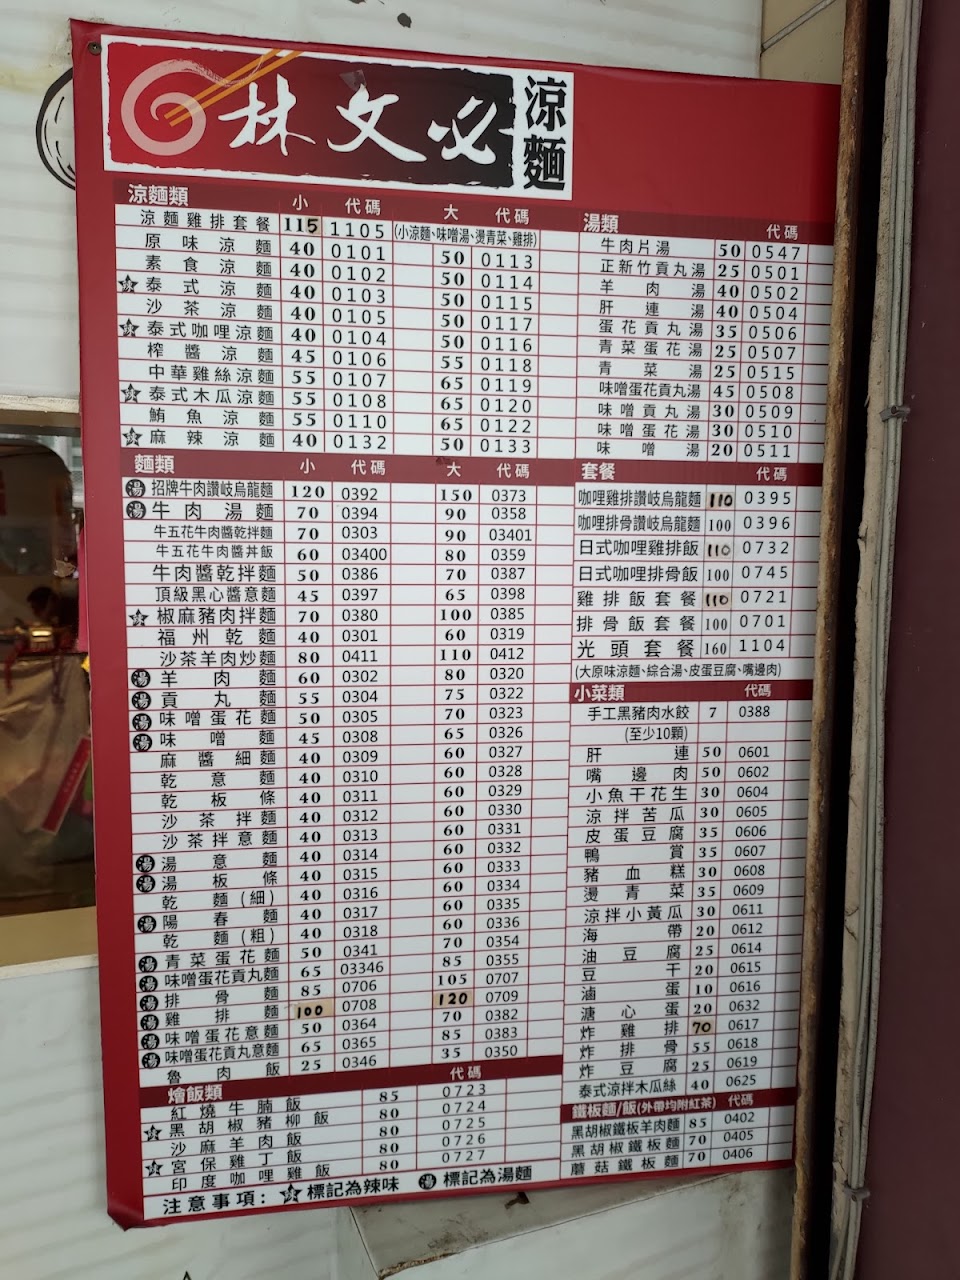 林文必 涼麵
涼麵類 小 代碼 大 代碼
涼麵雞排套餐 115 1105 (小涼麵、味噌湯、燙青菜、雞排)
原味涼麵 40 0101 50 0113
素食涼麵 40 0102 50 0114
辣 泰式涼麵 40 0103 50 0115
沙茶涼麵 40 0105 50 0117
辣 泰式咖哩涼麵 40 0104 50 0116
榨醬涼麵 45 0106 55 0118
中華雞絲涼麵 55 0107 65 0119
辣 泰式木瓜涼麵 55 0108 65 0120
鮪魚涼麵 55 0110 65 0122
辣 麻辣涼麵 40 0132 50 0133
麵類 小 代碼 大 代碼
湯 招牌牛肉讚岐烏龍麵 120 0392 150 0373
湯 牛肉湯麵 70 0394 90 0358
牛五花牛肉醬乾拌麵 70 0303 90 03401
牛五花牛肉醬丼飯 60 03400 80 0359
牛肉醬乾拌麵 50 0386 70 0387
頂級黑心醬意麵 45 0397 65 0398
辣 椒麻豬肉拌麵 70 0380 100 0385
福州乾麵 40 0301 60 0319
沙茶羊肉炒麵 80 0411 110 0412
湯 羊肉麵 60 0302 80 0320
湯 貢丸麵 55 0304 75 0322
湯 味噌蛋花麵 50 0305 70 0323
湯 味噌麵 45 0308 65 0326
麻醬細麵 40 0309 60 0327
乾意麵 40 0310 60 0328
乾板條 40 0311 60 0329
沙茶拌麵 40 0312 60 0330
沙茶拌意麵 40 0313 60 0331
湯 湯意麵 40 0314 60 0332
湯 湯板條 40 0315 60 0333
乾麵(細) 40 0316 60 0334
湯 陽春麵 40 0317 60 0335
乾麵(粗) 40 0318 60 0336
湯 青菜蛋花麵 50 0341 70 0354
湯 味噌蛋花貢丸麵 65 03346 85 0355
湯 排骨麵 85 0706 105 0707
湯 雞排麵 100 0708 120 0709
湯 味噌蛋花意麵 50 0364 70 0382
湯 味噌蛋花貢丸意麵 65 0365 85 0383
魯肉飯 25 0346 35 0350
燴飯類 代碼
紅燒牛腩飯 85 0723
辣 黑胡椒豬柳飯 80 0724
沙麻羊肉飯 80 0725
辣 宮保雞丁飯 80 0726
印度咖哩雞飯 80 0727
注意事項: 辣 標記為辣味 湯 標記為湯麵
湯類 代碼
牛肉片湯 50 0547
正新竹貢丸湯 25 0501
羊肉湯 40 0502
肝連湯 40 0504
蛋花貢丸湯 35 0506
青菜蛋花湯 25 0507
青菜湯 25 0515
味噌蛋花貢丸湯 45 0508
味噌貢丸湯 30 0509
味噌蛋花湯 30 0510
味噌湯 20 0511
套餐 代碼
咖哩雞排讚岐烏龍麵 110 0395
咖哩排骨讚岐烏龍麵 100 0396
日式咖哩雞排飯 110 0732
日式咖哩排骨飯 100 0745
雞排飯套餐 110 0721
排骨飯套餐 100 0701
光頭套餐 160 1104
(大原味涼麵、綜合湯、皮蛋豆腐、嘴邊肉)
小菜類 代碼
手工黑豬肉水餃 7 0388
(至少10顆)
肝連 50 0601
嘴邊肉 50 0602
小魚干花生 30 0604
涼拌苦瓜 30 0605
皮蛋豆腐 35 0606
鴨賞 35 0607
豬血糕 30 0608
燙青菜 35 0609
涼拌小黃瓜 30 0611
海帶 20 0612
油豆腐 25 0614
豆干 20 0615
滷蛋 10 0616
溏心蛋 20 0632
炸雞排 70 0617
炸排骨 55 0618
炸豆腐 25 0619
泰式涼拌木瓜絲 40 0625
鐵板麵/飯(外帶均附紅茶) 代碼
黑胡椒鐵板羊肉麵 85 0402
黑胡椒鐵板麵 70 0405
蘑菇鐵板麵 70 0406